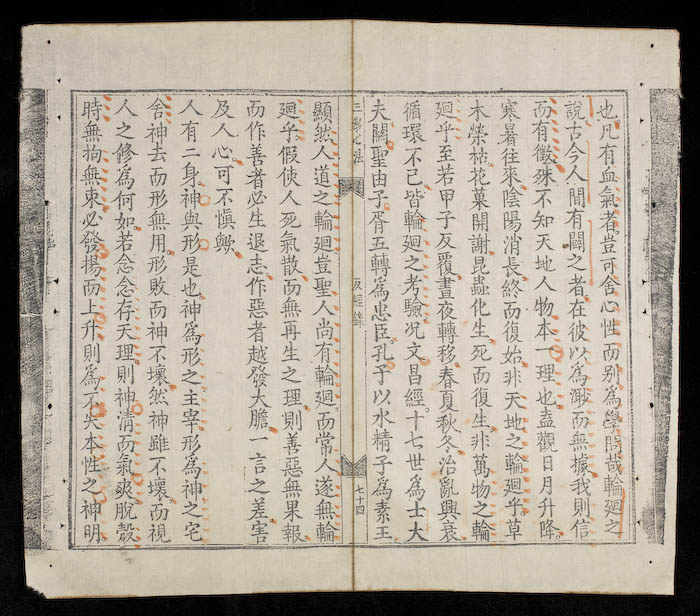 也凡有血氣者豈可舍心性而别為學問哉輪廻之
說古今人間有闢之者在彼以為渺而無據我則信
而有徵殊不知天地人物本一理也盍觀日月升降
寒暑往來陰陽消長終而復始非天地之輪廻乎草
木榮枯花菓開謝昆蟲化生死而復生非萬物之輪
廻乎至若甲子反覆晝夜轉移春夏秋冬治亂興衰
循環不已皆輪廻之考驗况文昌經十七世為士大
夫關聖由子胥五轉為忠臣孔子以水精子為素王
三 心法
反經錄
七十四
顯然人道之輪廻豈聖人尚有輪廻而常人遂無輪
廻乎假使人死氣散而無再生之理則善惡無果報
而作善者必生退志作惡者越發大膽一言之差害
及人心可不慎歟
人有二身神與形是也神為形之主宰形為神之宅
舍神去而形無用形敗而神不壞然神雖不壞而視
人之修為何如若念念存天理則神清而氣爽脫殼
時無拘無束必發揚而上升則為不失本性之神明